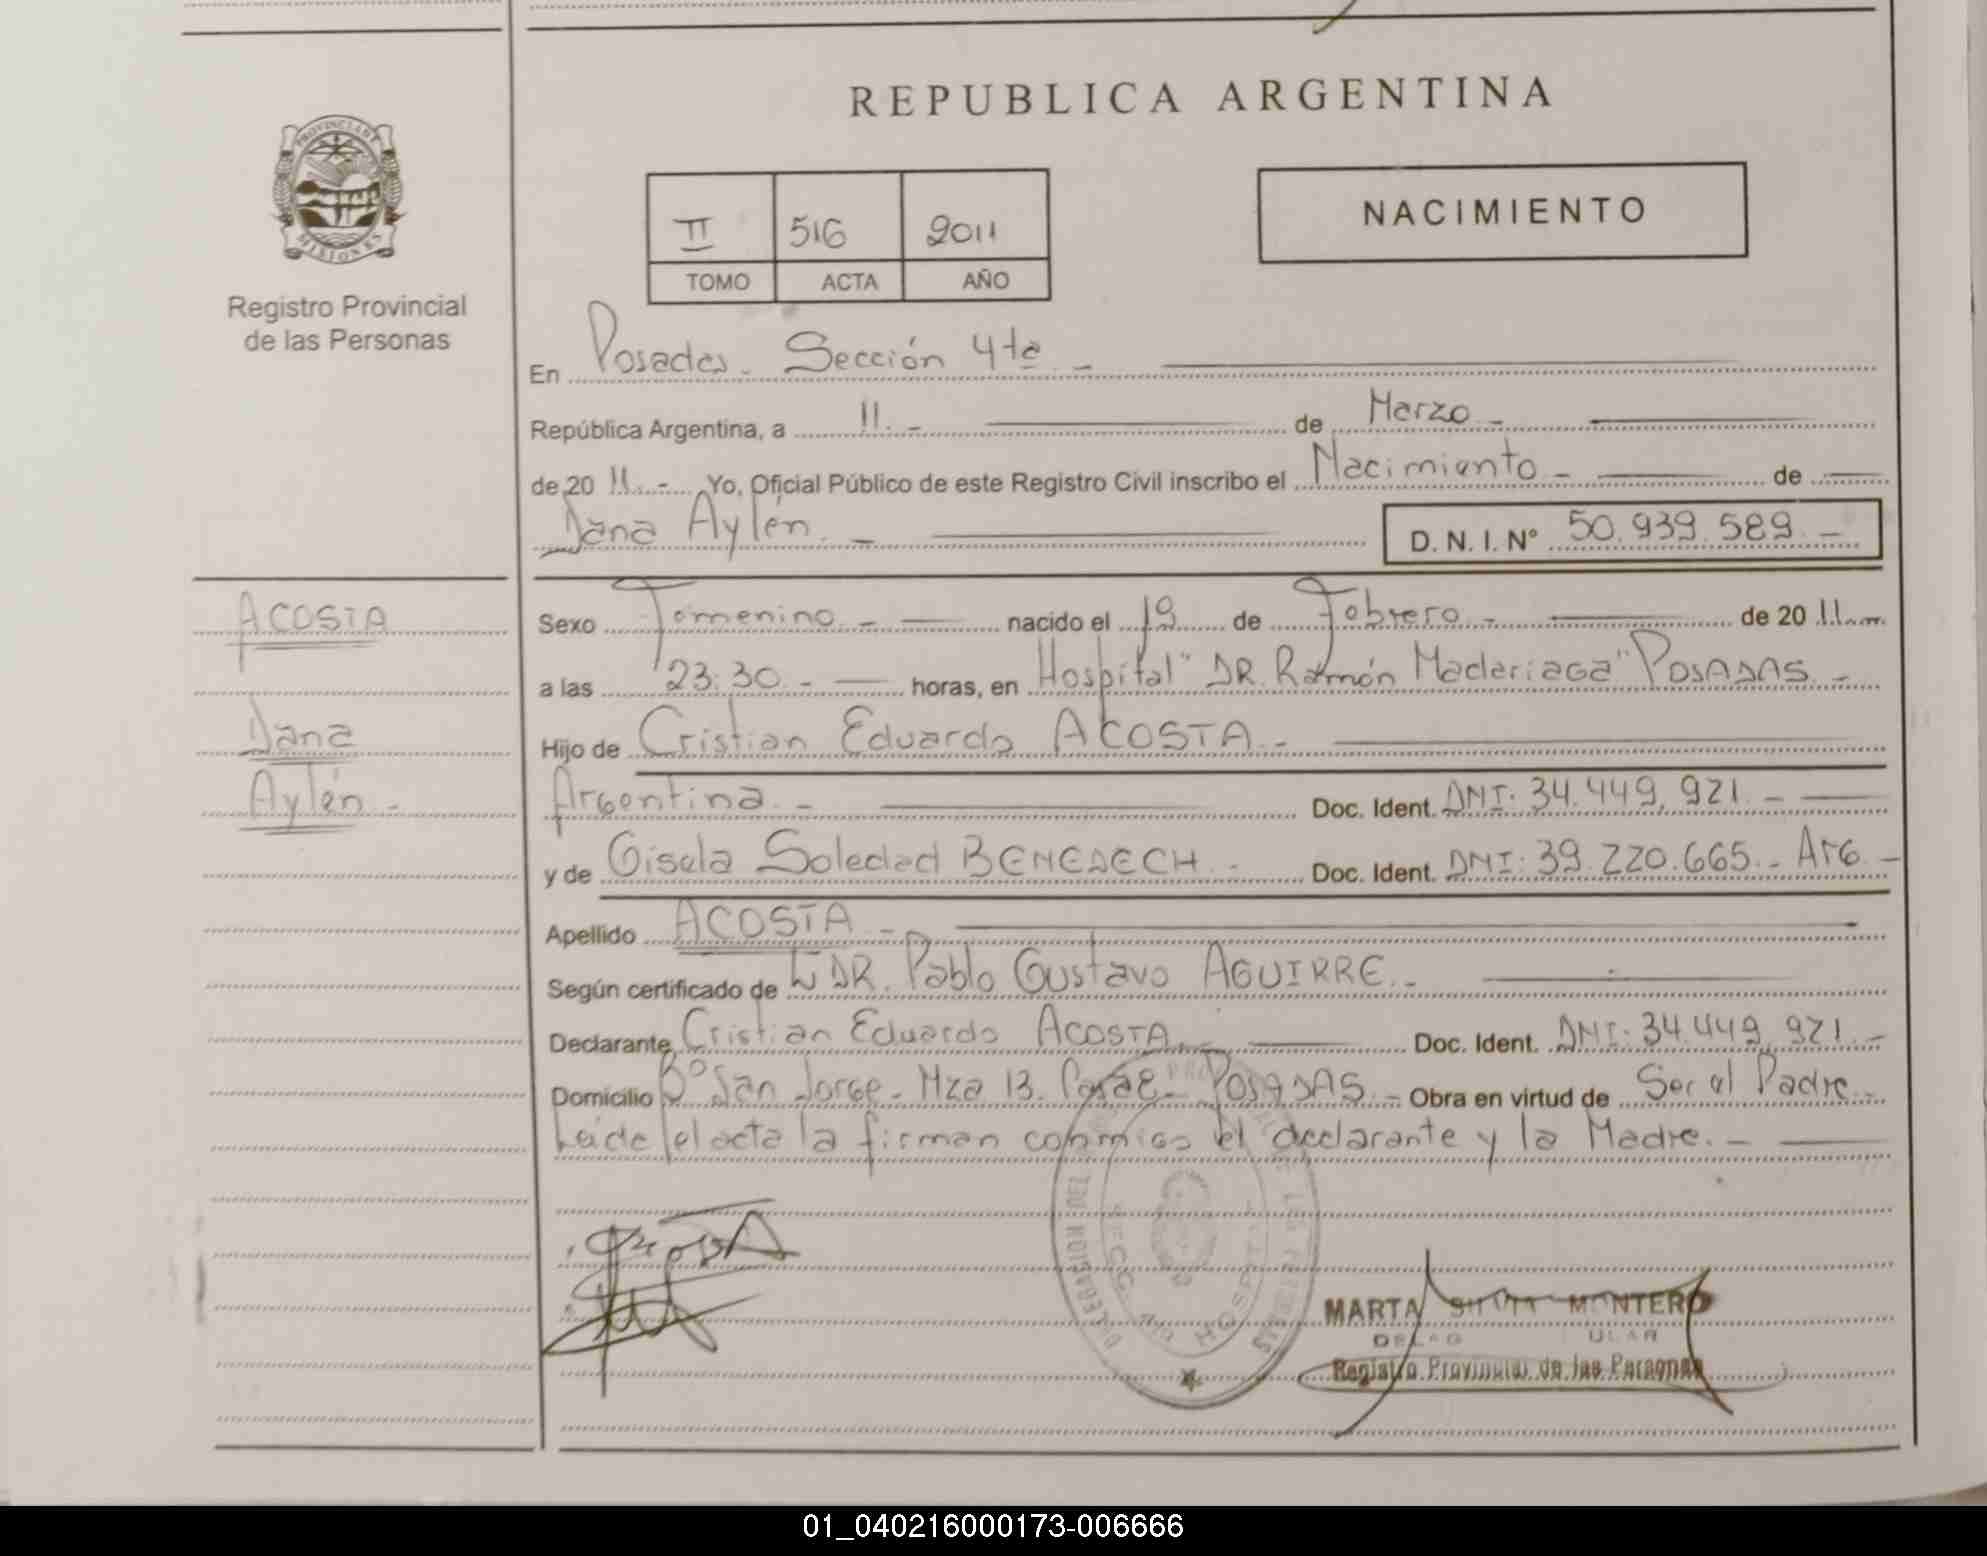 REPUBLICA ARGENTINA
PROVINCIA DE MISIONES
Registro Provincial
de las Personas
II 516 2011
TOMO ACTA AÑO
NACIMIENTO
En Posadas. Sección 4ta. -
República Argentina, a 11. - de Marzo -
de 20 11. - Yo, Oficial Público de este Registro Civil inscribo el Nacimiento - de
Dana Aylén. - D. N. I. N° 50.939.589. -
ACOSTA
Dana
Aylén -
Sexo Femenino. - nacido el 19 de Febrero. - de 20 11.
a las 23:30. - horas, en Hospital "DR. Ramón Madariaga" POSADAS. -
Hijo de Cristian Eduardo ACOSTA. -
Argentina. - Doc. Ident. DNI: 34.449.921. -
y de Gisela Soledad BENEDECH. - Doc. Ident. DNI: 39.220.665. - Arg. -
Apellido ACOSTA -
Según certificado de DR. Pablo Gustavo AGUIRRE. -
Declarante Cristian Eduardo ACOSTA. - Doc. Ident. DNI: 34.449.921. -
Domicilio B° San Jorge - Mza 13. Casa POSADAS. - Obra en virtud de Ser el Padre. -
Leída el acta la firman conmigo el declarante y la Madre. -
DELEGACION DEL
HOSPITAL
MARTA SILVIA MONTERO
Registro Provincial de las Personas
01_040216000173-006666